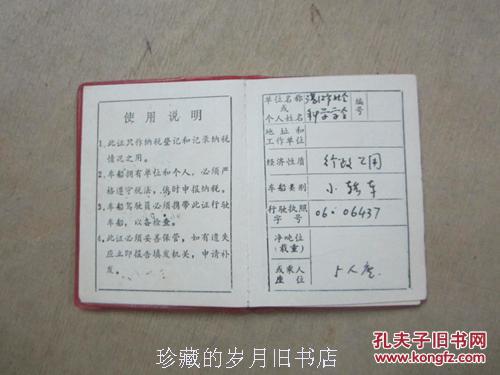 使用说明
1.此证只作纳税登记和记录纳税
情况之用。
2.车船拥有单位和个人，必须严
格遵守税法，按时申报纳税。
3.车船驾驶员必须携带此证行驶
车船，以备检查。
4.此证必须妥善保管，如有遗失
应立即报告填发机关，申请补
发。
单位名称
或
个人姓名
科学学会
编号
地址和
工作单位
经济性质
行政
车船类别
小轿车
行驶执照
字号
06·06437
净吨位
(载重)
或乘人
座位
5人座
珍藏的岁月旧书店
孔夫子旧书网
www.kongfz.com